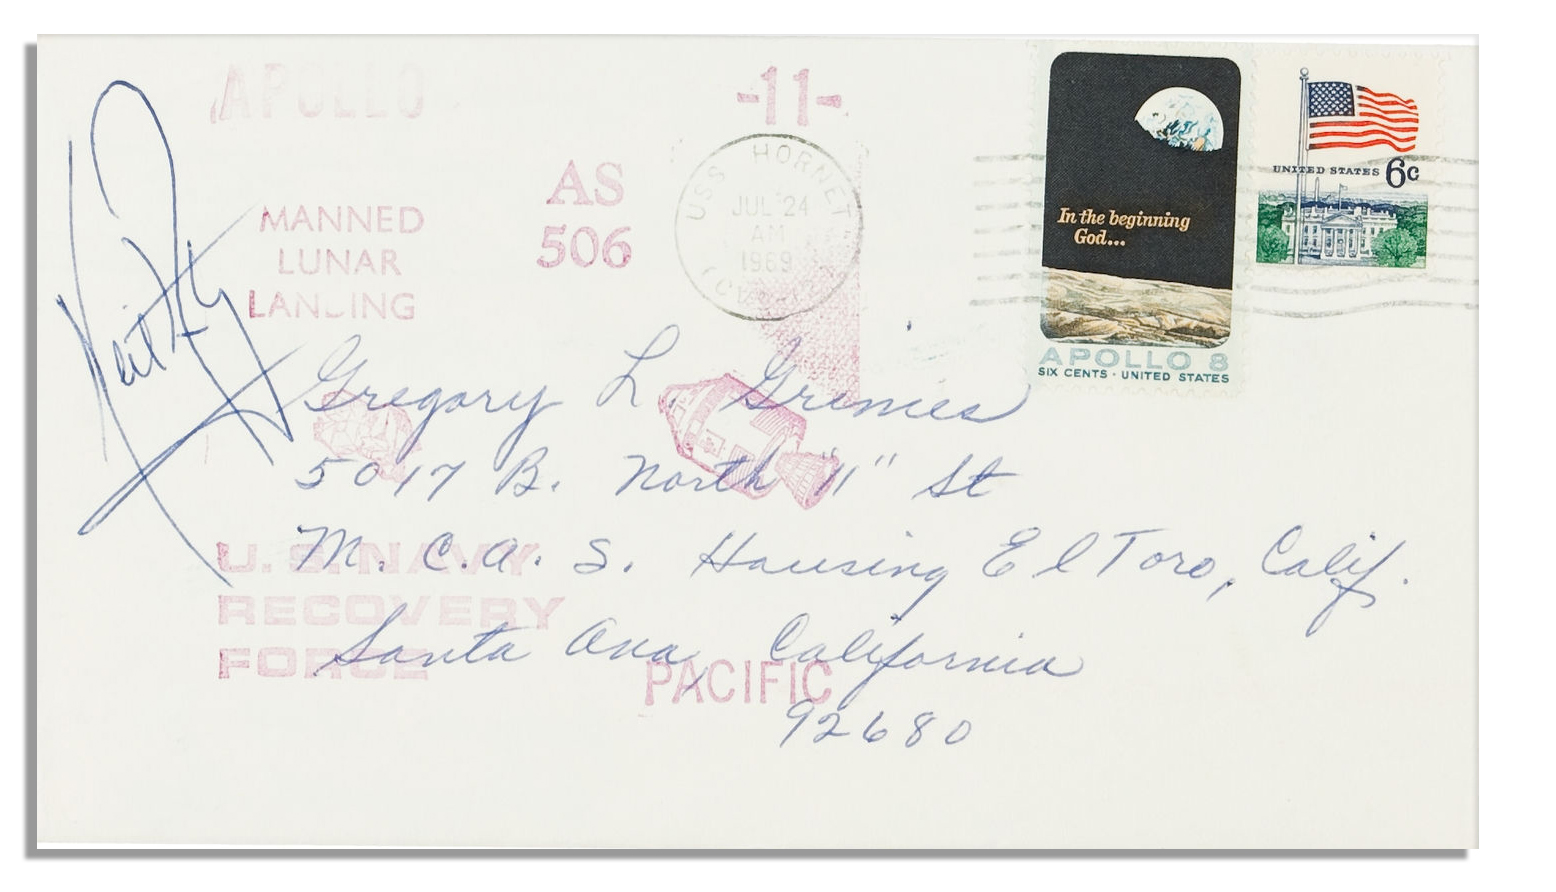 APOLLO -11-
AS
506
MANNED
LUNAR
LANDING
USS HORNET
JUL 24
AM
1969
In the beginning
God...
APOLLO 8
SIX CENTS · UNITED STATES
UNITED STATES 6c
Gregory L Grimes
5017 B. North "11" St
M. C. A. S. Housing El Toro, Calif.
Santa Ana, California
92680
U. S. NAVY
RECOVERY
FORCE
PACIFIC